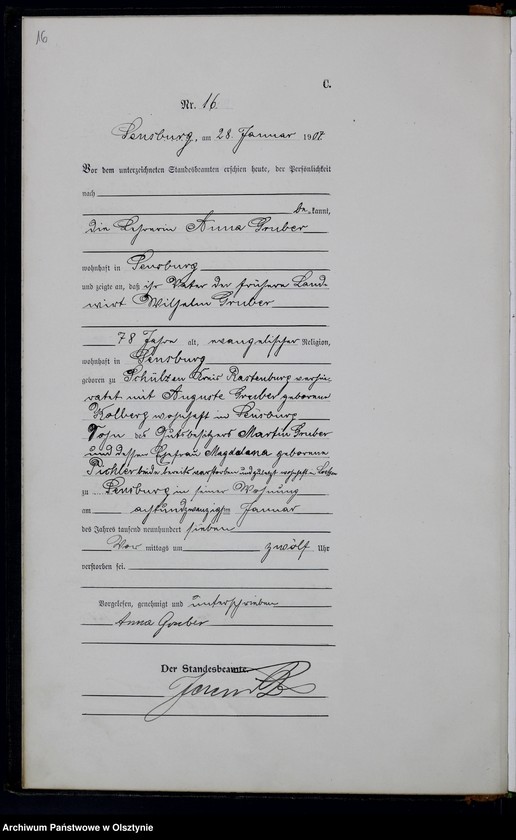 16
C.
Nr. 16.
Sensburg, am 28. Januar 1907
Vor dem unterzeichneten Standesbeamten erschien heute, der Persönlichkeit
nach
be kannt,
die Lehrerin Anna Gruber
wohnhaft in Sensburg
und zeigte an, daß ihr Vater der frühere Land-
wirt Wilhelm Gruber
78 Jahre alt, evangelischer Religion,
wohnhaft in Sensburg
geboren zu Schülzen Kreis Rastenburg verhei-
ratet mit Auguste Gruber geborene
Kolberg wohnhaft in Sensburg
Sohn des Gutsbesitzers Martin Gruber
und dessen Ehefrau Magdalena geborene
Pichler beide bereits verstorben und zuletzt wohnhaft in
zu Sensburg in seiner Wohnung
am achtundzwanzigsten Januar
des Jahres tausend neunhundert sieben
Vor mittags um zwölf Uhr
verstorben sei.
Vorgelesen, genehmigt und unterschrieben
Anna Gruber
Der Standesbeamte.
Archiwum Państwowe w Olsztynie